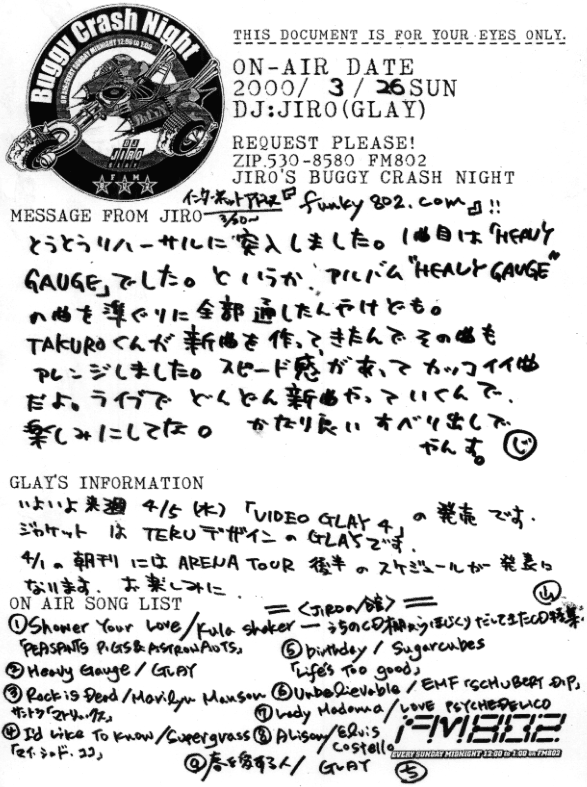 Buggy Crash Night
EVERY SUNDAY MIDNIGHT 12:00 to 1:00
DJ
JIRO
GLAY
FM
802
THIS DOCUMENT IS FOR YOUR EYES ONLY.
ON-AIR DATE
2000/ 3 / 26 SUN
DJ:JIRO(GLAY)
REQUEST PLEASE!
ZIP.530-8580 FM802
JIRO'S BUGGY CRASH NIGHT
インターネットアドレス『funky802.com』!!
3/30～
MESSAGE FROM JIRO
とうとうリハーサルに突入しました。1曲目は「HEAVY
GAUGE」でした。というか、アルバム"HEAVY GAUGE"
の曲を準ぐりに全部通したんやけども。
TAKUROくんが新曲を作ってきたんでその曲も
アレンジしました。スピード感があってカッコイイ曲
だよ。ライブでどんどん新曲やっていくんで、
楽しみにしてな。かなり良いすべり出しで
やんす。じ
GLAY'S INFORMATION
いよいよ来週 4/5(水)「VIDEO GLAY 4」の発売です.
ジャケットはTERUデザインのGLAYです.
4/1の朝刊にはARENA TOUR 後半のスケジュールが発表に
なります. お楽しみに. 山
ON AIR SONG LIST
=<JIROの館>=
①Shower Your Love/Kula shaker ― うちのCD棚からほじくりだしてきたCD特集
「PEASANTS PIGS & ASTRONAUTS」
②Heavy Gauge/GLAY
③Rock is Dead/Marilyn Manson
サントラ「マトリックス」
④I'd Like To Know/Supergrass
⑤birthday/Sugarcubes
「Life's Too good」
⑥Unbelievable/EMF「SCHUBERT DIP」
⑦Lady Madonna/LOVE PSYCHEDELICO
⑧Alison/Elvis
Costello
⑨春を愛する人/GLAY
FM802
EVERY SUNDAY MIDNIGHT 12:00 to 1:00 on FM802